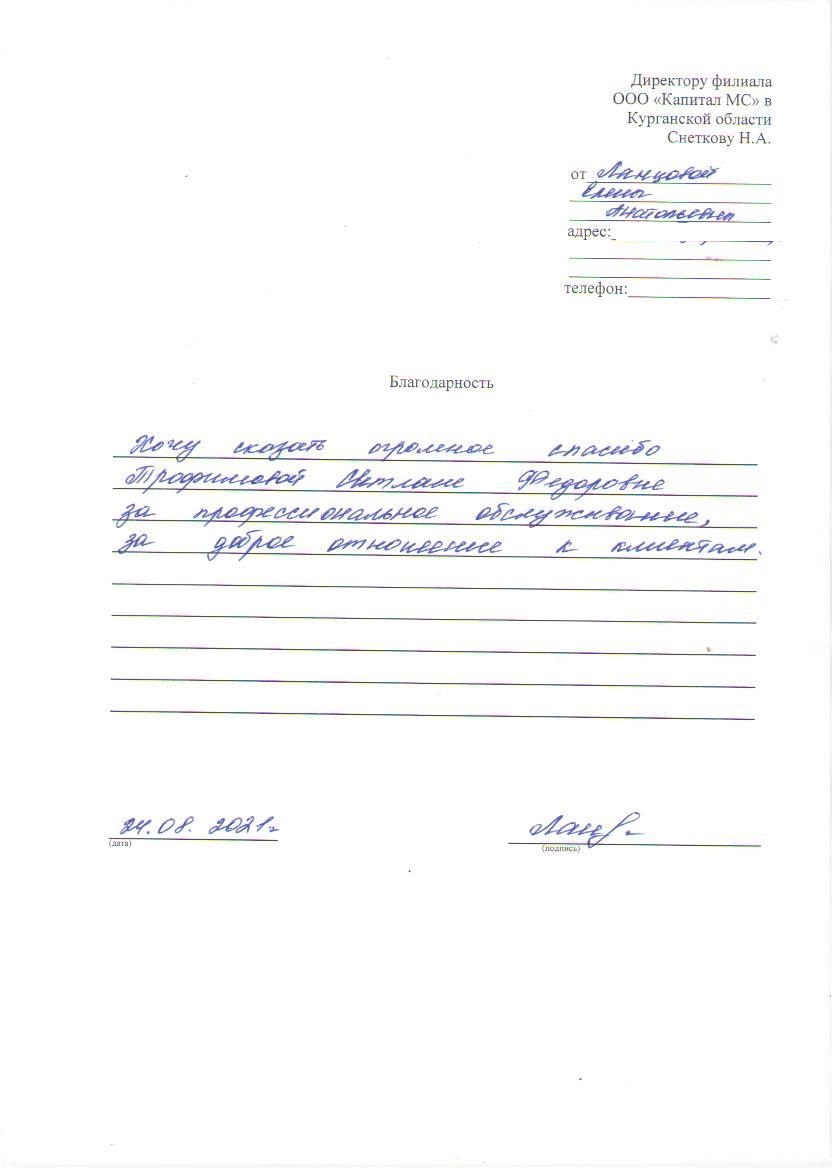 Директору филиала
ООО «Капитал МС» в
Курганской области
Снеткову Н.А.
от Ланцовой
Елены
Анатольевны
адрес:
телефон:
Благодарность
Хочу сказать огромное спасибо
Трофимовой Светлане Федоровне
за профессиональное обслуживание,
за доброе отношение к клиентам.
24.08.2021г
(дата)
Ланц
(подпись)